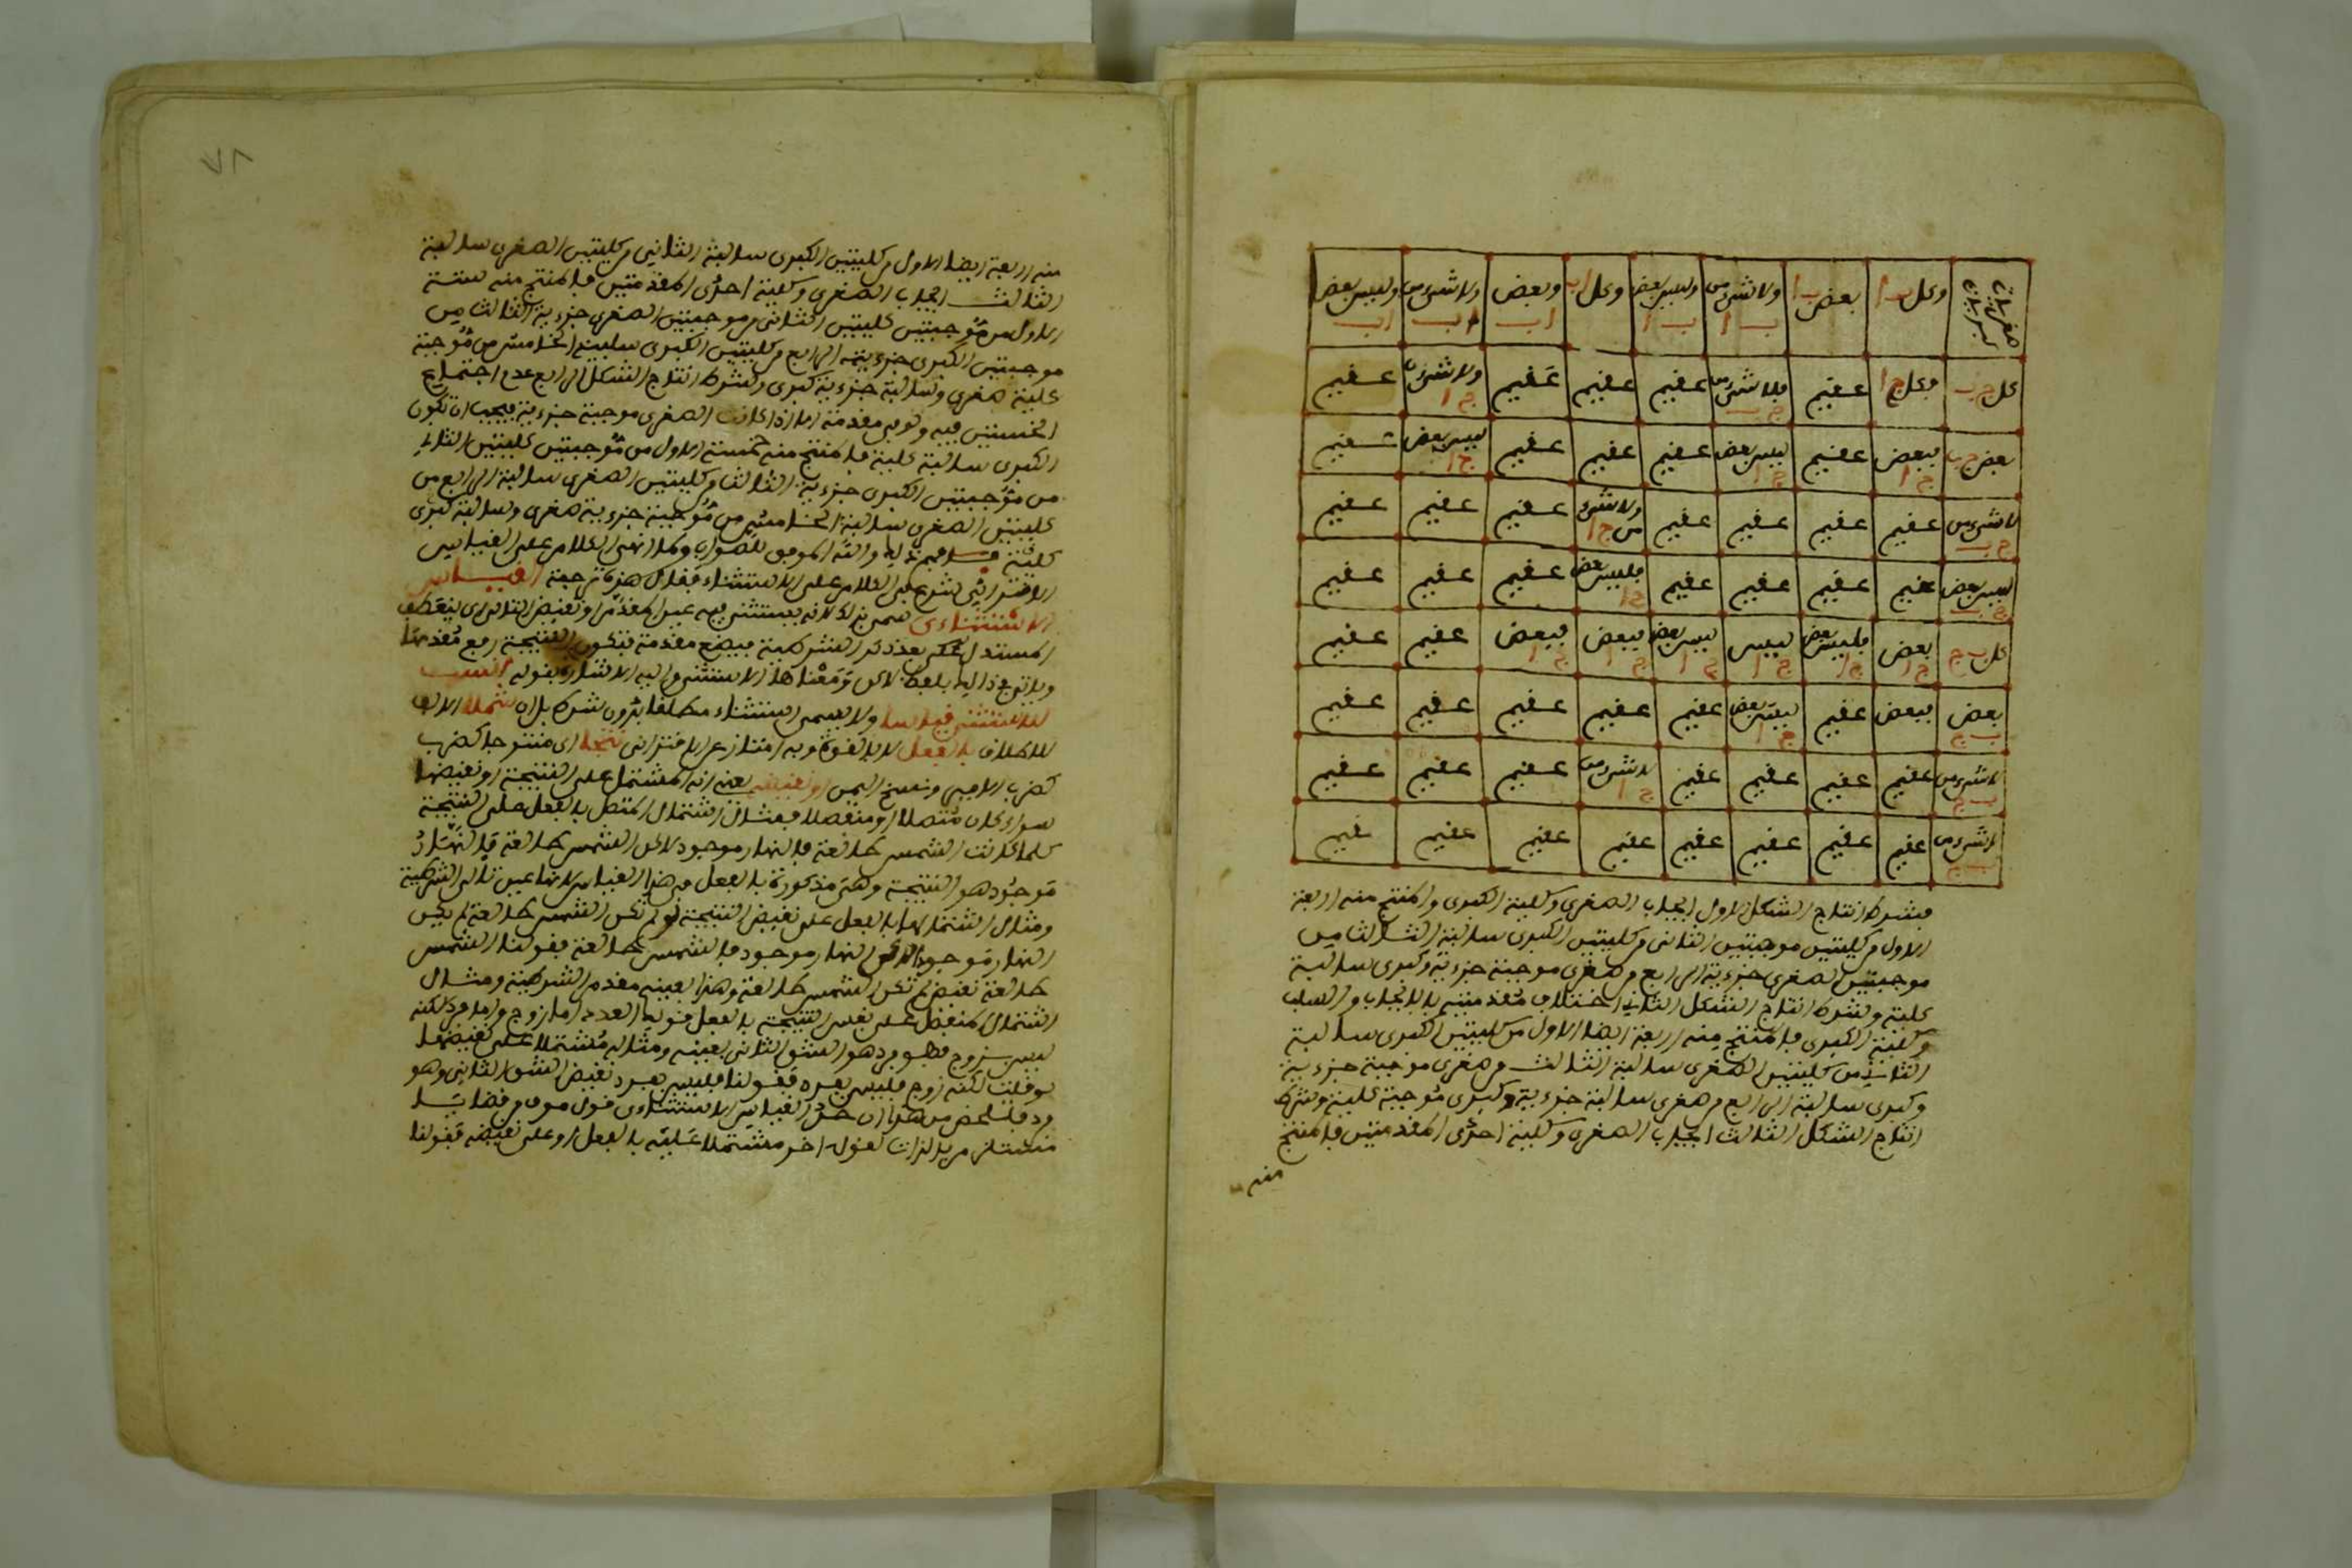 صغريات كبريات وكل ب ا بعض ب ا ولا شيء من ب ا وليس بعض ب ا وكل ا ب وبعض ا ب ولا شيء من ا ب وليس بعض ا ب
كل ج ب فكل ج ا عقيم فلا شيء من ج ب عقيم عقيم عقيم ولا شيء من ج ا عقيم
بعض ج ب فبعض ج ا عقيم ليس بعض ج ا عقيم عقيم عقيم ليس بعض ج ا عقيم
لا شيء من ج ب عقيم عقيم عقيم عقيم ولا شيء من ج ا عقيم عقيم عقيم
ليس بعض ج ب عقيم عقيم عقيم عقيم فليس بعض ج ا عقيم عقيم عقيم
كل ب ج بعض ج ا فليس بعض ج ا ليس ج ا ليس بعض ج ا فبعض ج ا فبعض ج ا عقيم عقيم
بعض ب ج فبعض عقيم ليس بعض ج ا عقيم عقيم عقيم عقيم عقيم
لا شيء من ب ج عقيم عقيم عقيم عقيم لا شيء من ج ا عقيم عقيم عقيم
لا شيء من ب ج عقيم عقيم عقيم عقيم عقيم عقيم عقيم عقيم
فشرط انتاج الشكل الاول ايجاب الصغرى وكلية الكبرى والمنتج منه اربعة
الاول من كليتين موجبتين الثاني من كليتين الكبرى سالبة الثالث من
موجبتين الصغرى جزءية الرابع من صغرى موجبة جزءية وكبرى سالبة
كلية وشرط انتاج الشكل الثاني اختلاف مقدمتيه بالايجاب والسلب
وكلية الكبرى فالمنتج منه اربعة ايضا الاول من كليتين الكبرى سالبة
الثاني من كليتين الصغرى سالبة الثالث من صغرى موجبة جزءية
وكبرى سالبة الرابع من صغرى سالبة جزءية وكبرى موجبة كلية وشرط
انتاج الشكل الثالث ايجاب الصغرى وكلية احدى المقدمتين فالمنتج
منه
٧٨
منه اربعة ايضا الاول من كليتين الكبرى سالبة الثاني من كليتين الصغرى سالبة
الثالث ايجاب الصغرى وكلية احدى المقدمتين فالمنتج منه ستة
الاول من موجبتين كليتين الثاني من موجبتين الصغرى جزءية الثالث من
موجبتين الكبرى جزءية الرابع من كليتين الكبرى سالبة الخامس من موجبة
كلية صغرى وسالبة جزءية كبرى وشرط انتاج الشكل الرابع عدم اجتماع
الخستين فيه ولو في مقدمة الا اذا كانت الصغرى موجبة جزءية فيجب ان تكون
الكبرى سالبة كلية فالمنتج منه خمسة الاول من موجبتين كليتين الثاني
من موجبتين الكبرى جزءية الثالث من كليتين الصغرى سالبة الرابع من
كليتين الصغرى سالبة الخامس من موجبة جزءية صغرى وسالبة كبرى
كلية فافهم ذلك والله الموفق للصواب ولما انهى الكلام على القياس
الاقتراني شرع في الكلام على الاستثناء فقال هذه ترجمة القياس
الاستثناءى سمي بذلك لانه يستثنى فيه عين المقدم او نقيض التالي اي ينعطف
المستدل بعد ذكر الشرطية فيضع مقدمة فتكون النتيجة رفع مقدمها
ويؤتى في ذلك بلفظ لاكن ومعناها الاستثناء واليه الاشارة بقوله انسب
للاستثنى قياسا ولا يسمى استثناء مطلقا بدون شرط بل ان شملا الالف
للاطلاق بالفعل لا بالقوة وبه امتاز عن الاقتراني نتجا اى منتوجا كضرب
كضرب الامير ونسج اليمن او نقيضه يعني انه المشتمل على النتيجة او نقيضها
سواء كان متصلا او منفصلا فمثال اشتمال المتصل بالفعل على النتيجة
كلما كانت الشمس طالعة فالنهار موجود لاكن الشمس طالعة فالنهار
موجود هو النتيجة وهي مذكورة بالفعل في هذا القياس لانها عين تالي الشرطية
ومثال اشتمالها بالفعل على نقيض النتيجة لو لم تكن الشمس طالعة لم يكن
النهار موجودا لاكن النهار موجود فالشمس طالعة فقولنا الشمس
طالعة نقيض لم تكن الشمس طالعة وهذا بعينه مقدم الشرطية ومثال
اشتمال المنفصل على نفس النتيجة بالفعل قولك العدد اما زوج واما فرد لكنه
ليس بزوج فهو فرد هو الشق الثاني بعينه ومثاله مشتملا على نقيضها
لو قلت لكنه زوج فليس بفرد فقولنا فليس بفرد نقيض الشق الثاني وهو
فرد فتلخص من هذا ان حد القياس الاستثناءى قول مولف من قضايا
مستلزم بالذات لقول اخر مشتملا عليه بالفعل او على نقيضه فقولنا